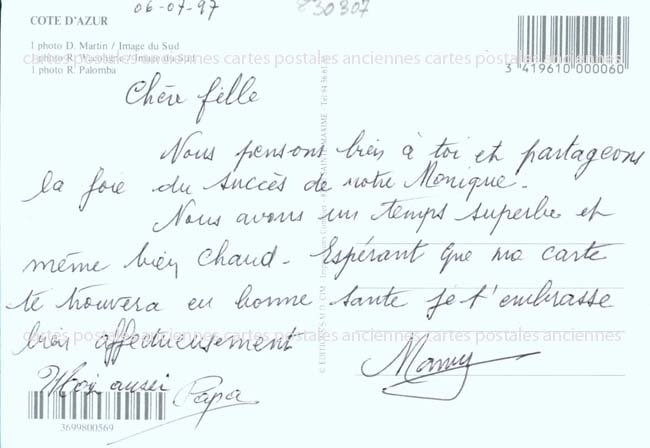 06-07-97 830807
COTE D'AZUR
1 photo D. Martin / Image du Sud
1 photo R. / Image du Sud
1 photo R. Palomba
3 419610 000060
cartes postales anciennes cartes postales anciennes cartes postales anciennes
Chère fille
Nous pensons bien à toi et partageons
la joie du succès de notre Monique.
Nous avons un temps superbe et
même bien chaud - Espérant que ma carte
te trouvera en bonne sante je t'embrasse
cartes postales anciennes cartes postales anciennes cartes postales anciennes
bien affectueusement
Mamy
Moi aussi Papa
3699800569